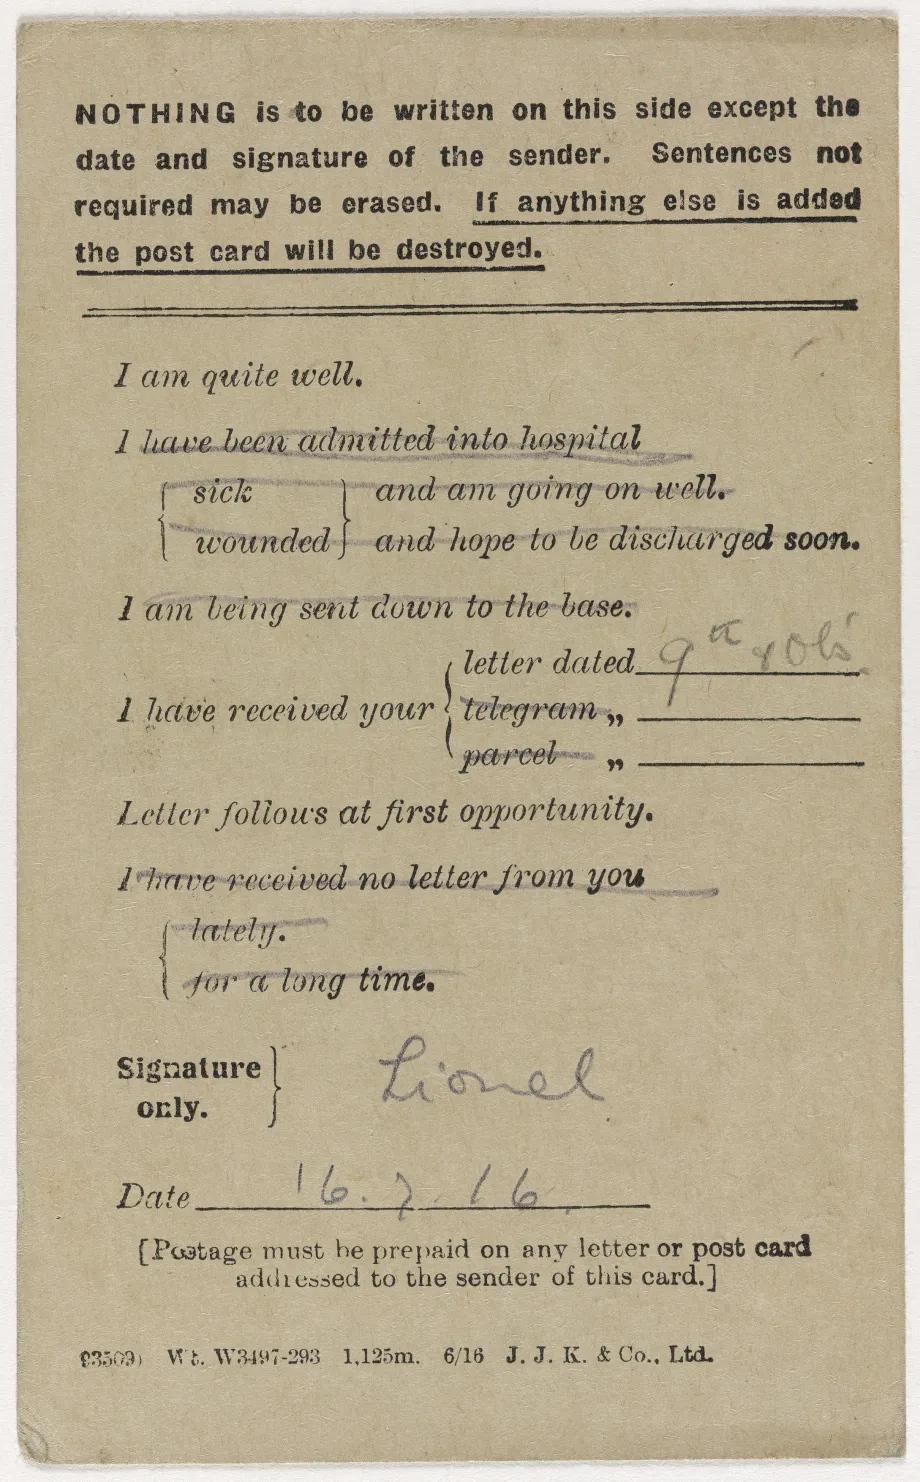 NOTHING is to be written on this side except the
date and signature of the sender. Sentences not
required may be erased. If anything else is added
the post card will be destroyed.
I am quite well.
I have been admitted into hospital
sick and am going on well.
wounded and hope to be discharged soon.
I am being sent down to the base.
letter dated 9th &
I have received your telegram „
parcel „
Letter follows at first opportunity.
I have received no letter from you
lately.
for a long time.
Signature
only.
Lionel
Date 16.7.16.
[Postage must be prepaid on any letter or post card
addressed to the sender of this card.]
93509) Wt. W3497-293 1,125m. 6/16 J. J. K. & Co., Ltd.